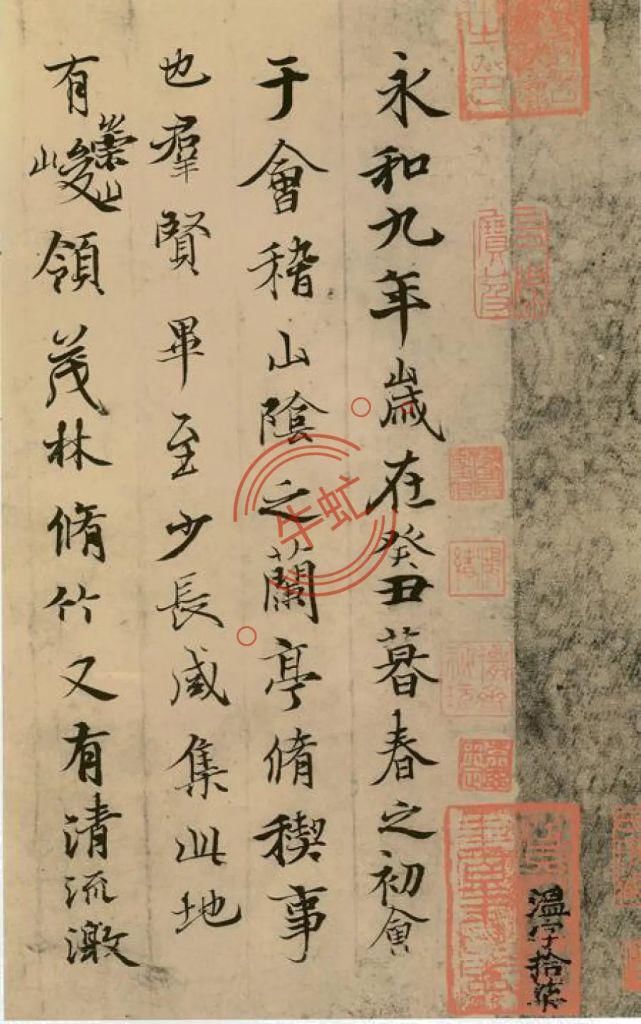 永和九年歲在癸丑暮春之初會
于會稽山陰之蘭亭脩稧事
也羣賢畢至少長咸集此地
有崇山峻領茂林脩竹又有清流激
溫字拾
牛虹